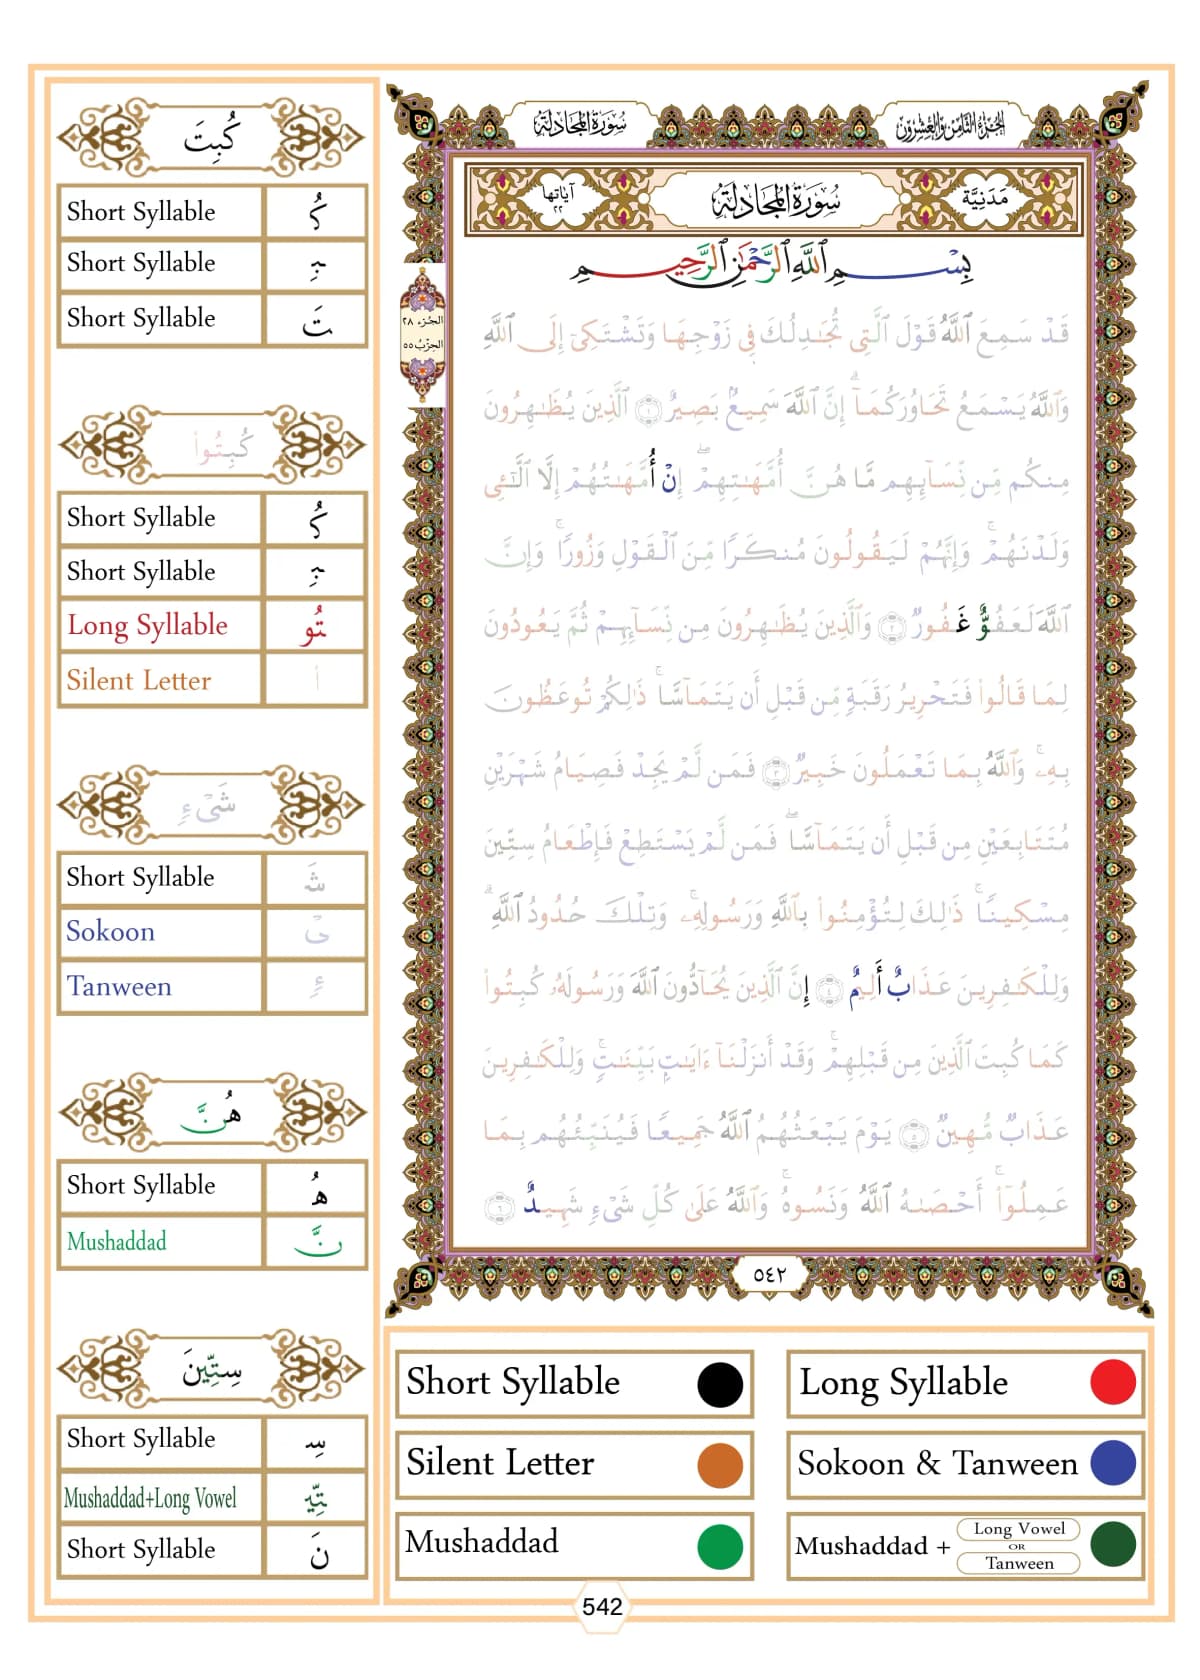 سُورَةُ المُجَادلة
الجزء الثامن والعشرون
آياتها ٢٢
سُورَةُ المُجَادلَة
مَدَنِيَّة
بِسْمِ ٱللَّهِ ٱلرَّحْمَٰنِ ٱلرَّحِيمِ
الجُزء ٢٨
الحِزْبُ ٥٥
قَدْ سَمِعَ ٱللَّهُ قَوْلَ ٱلَّتِى تُجَٰدِلُكَ فِى زَوْجِهَا وَتَشْتَكِىٓ إِلَى ٱللَّهِ
وَٱللَّهُ يَسْمَعُ تَحَاوُرَكُمَآ ۚ إِنَّ ٱللَّهَ سَمِيعٌۢ بَصِيرٌ ١ ٱلَّذِينَ يُظَٰهِرُونَ
مِنكُم مِّن نِّسَآئِهِم مَّا هُنَّ أُمَّهَٰتِهِمْ ۖ إِنْ أُمَّهَٰتُهُمْ إِلَّا ٱلَّٰٓـِٔى
وَلَدْنَهُمْ ۚ وَإِنَّهُمْ لَيَقُولُونَ مُنكَرًا مِّنَ ٱلْقَوْلِ وَزُورًا ۚ وَإِنَّ
ٱللَّهَ لَعَفُوٌّ غَفُورٌ ٢ وَٱلَّذِينَ يُظَٰهِرُونَ مِن نِّسَآئِهِمْ ثُمَّ يَعُودُونَ
لِمَا قَالُوا۟ فَتَحْرِيرُ رَقَبَةٍ مِّن قَبْلِ أَن يَتَمَآسَّا ۚ ذَٰلِكُمْ تُوعَظُونَ
بِهِۦ ۚ وَٱللَّهُ بِمَا تَعْمَلُونَ خَبِيرٌ ٣ فَمَن لَّمْ يَجِدْ فَصِيَامُ شَهْرَيْنِ
مُتَتَابِعَيْنِ مِن قَبْلِ أَن يَتَمَآسَّا ۖ فَمَن لَّمْ يَسْتَطِعْ فَإِطْعَامُ سِتِّينَ
مِسْكِينًا ۚ ذَٰلِكَ لِتُؤْمِنُوا۟ بِٱللَّهِ وَرَسُولِهِۦ ۚ وَتِلْكَ حُدُودُ ٱللَّهِ ۗ
وَلِلْكَٰفِرِينَ عَذَابٌ أَلِيمٌ ٤ إِنَّ ٱلَّذِينَ يُحَآدُّونَ ٱللَّهَ وَرَسُولَهُۥ كُبِتُوا۟
كَمَا كُبِتَ ٱلَّذِينَ مِن قَبْلِهِمْ ۚ وَقَدْ أَنزَلْنَآ ءَايَٰتٍۭ بَيِّنَٰتٍ ۚ وَلِلْكَٰفِرِينَ
عَذَابٌ مُّهِينٌ ٥ يَوْمَ يَبْعَثُهُمُ ٱللَّهُ جَمِيعًا فَيُنَبِّئُهُم بِمَا
عَمِلُوٓا۟ ۚ أَحْصَىٰهُ ٱللَّهُ وَنَسُوهُ ۚ وَٱللَّهُ عَلَىٰ كُلِّ شَىْءٍ شَهِيدٌ ٦
٥٤٢
كُبِتَ
Short Syllable كُ
Short Syllable بِ
Short Syllable تَ
كُبِتُوا۟
Short Syllable كُ
Short Syllable بِ
Long Syllable تُو
Silent Letter ا
شَىْءٍ
Short Syllable شَ
Sokoon ىْ
Tanween ءٍ
هُنَّ
Short Syllable هُ
Mushaddad نَّ
سِتِّينَ
Short Syllable سِ
Mushaddad+Long Vowel تِّي
Short Syllable نَ
Short Syllable
Long Syllable
Silent Letter
Sokoon & Tanween
Mushaddad
Mushaddad + Long Vowel OR Tanween
542